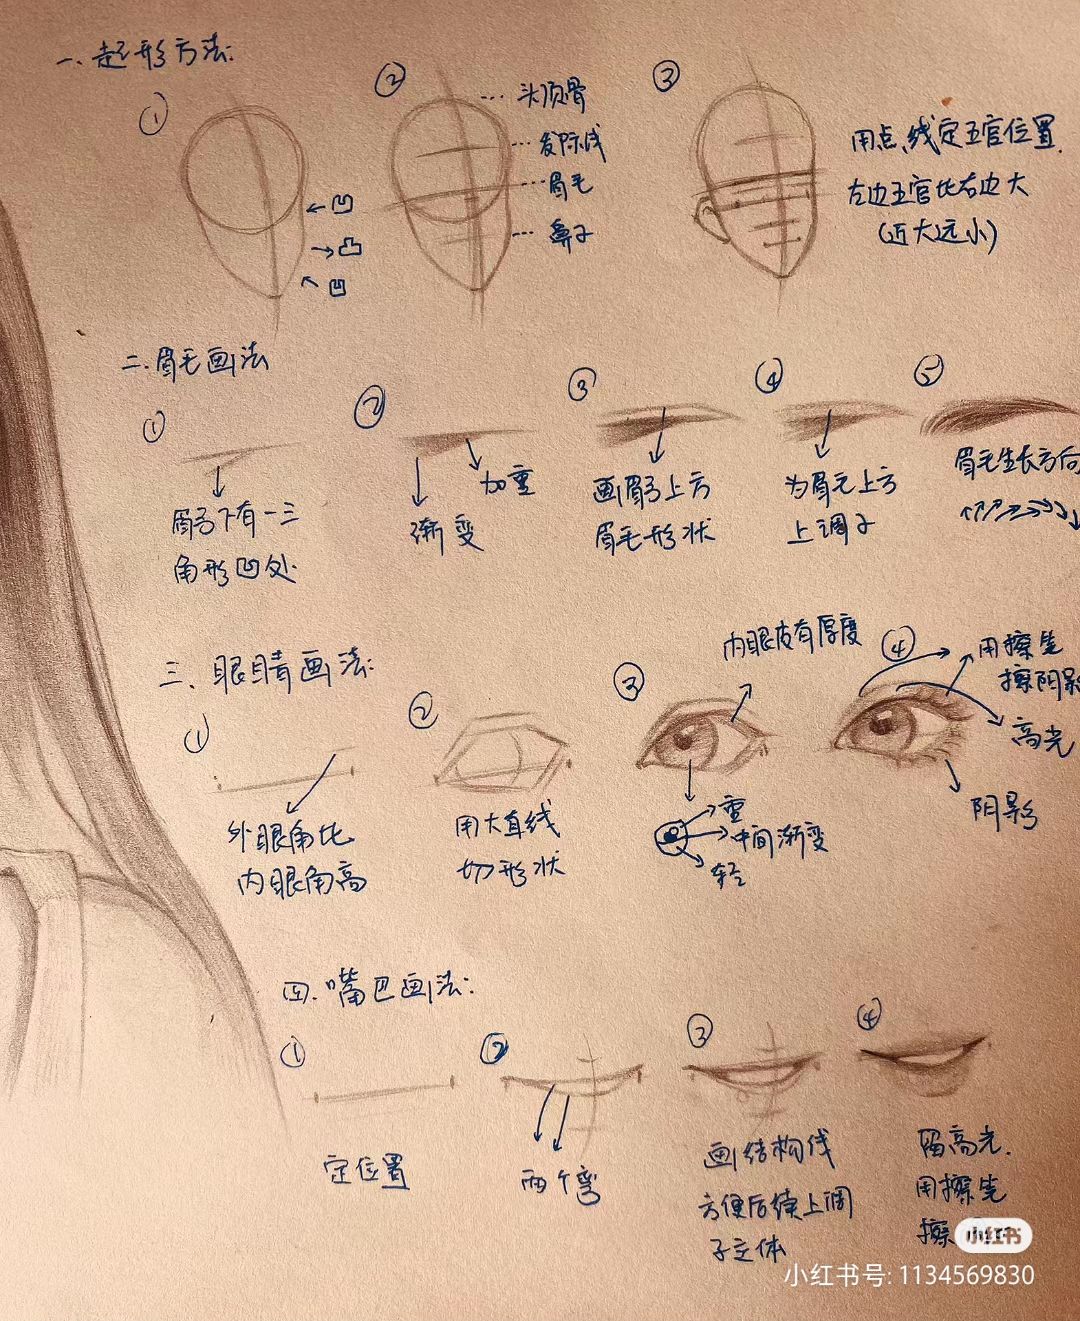 一、起形方法:
①
②
③
凹
凸
凹
头顶骨
发际线
眉毛
鼻子
用点、线定五官位置.
左边五官比右边大
(近大远小)
二.眉毛画法
①
②
③
④
⑤
眉弓下有一三
角形凹处.
渐变
加重
画眉弓上方
眉毛形状
为眉毛上方
上调子
眉毛生长方向
三、眼睛画法:
①
②
③
④
外眼角比
内眼角高
用大直线
切形状
内眼皮有厚度
重
中间渐变
轻
用擦笔
擦阴影
高光
阴影
四.嘴巴画法:
①
②
③
④
定位置
两个弯
画结构线
方便后续上调
子立体
留高光.
用擦笔
擦
小红书
小红书号: 1134569830